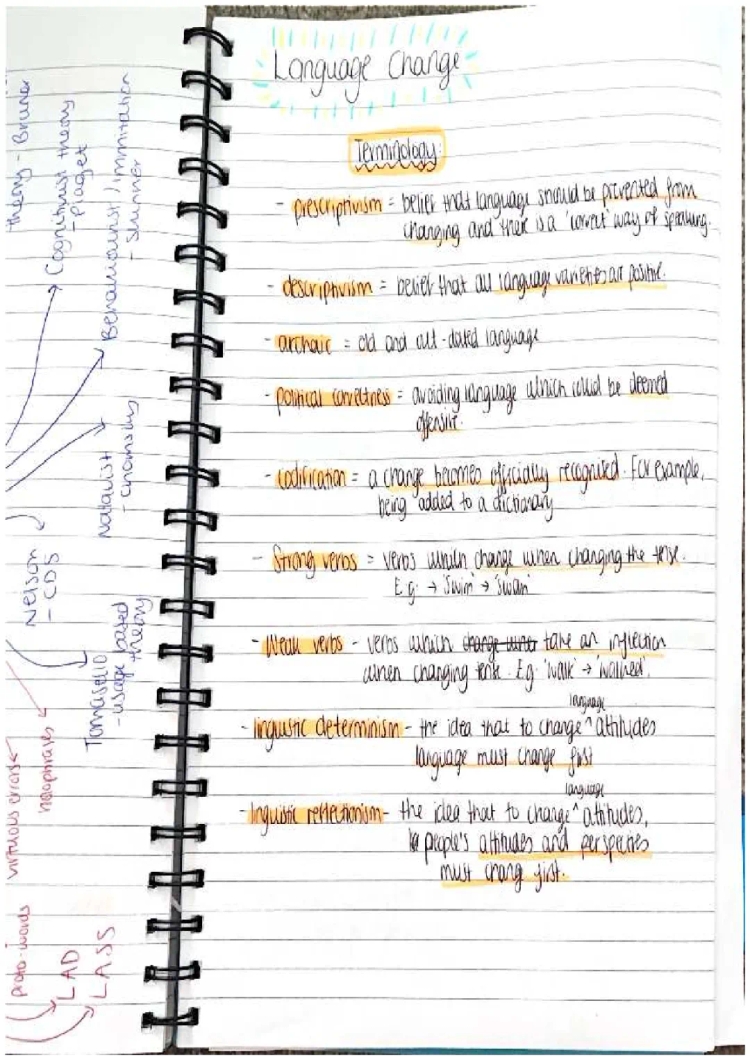 theory - Bruner
Cognitivist theory
- Piaget
Behaviourist / immitation
- Skinner
Nativist
- Chomsky
Nelson
- CDS
Tomasello
- usage based
theory
holophrases
virtuous errors
proto-words
LAD
LASS
Language Change
Terminology:
- prescriptivism = belief that language should be prevented from
changing and there is a 'correct' way of speaking.
- descriptivism = belief that all language varieties are positive.
- archaic = old and out-dated language
- political correctness = avoiding language which could be deemed
offensive.
- codification = a change becomes officially recognised. For example,
being added to a dictionary
- Strong verbs = verbs which change when changing the tense.
E.g. → 'swim' → 'swam'
- Weak verbs - verbs which change when take an inflection
when changing tense. E.g. 'walk' → 'walked'.
language
- linguistic determinism - the idea that to change ^ attitudes
language must change first
language
- linguistic reflectionism - the idea that to change ^ attitudes,
people's attitudes and perspectives
must chang first.